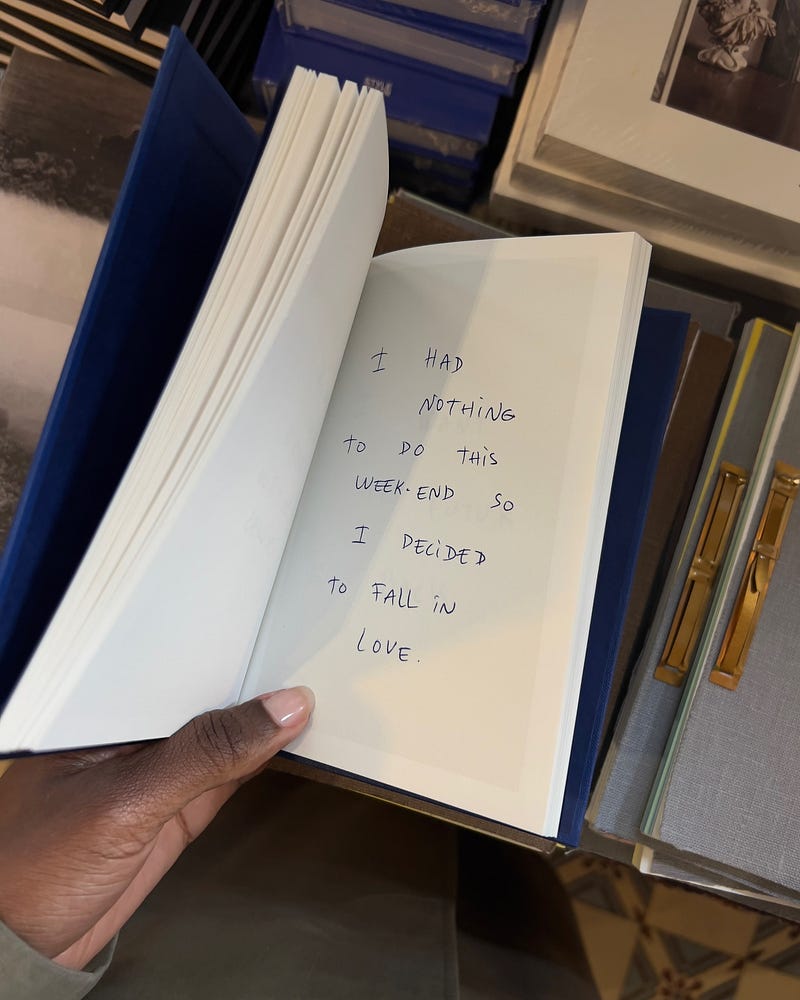 STYLE
I HAD
NOTHiNG
TO DO THiS
WEEK-END SO
I DECiDED
TO FALL iN
LOVE.